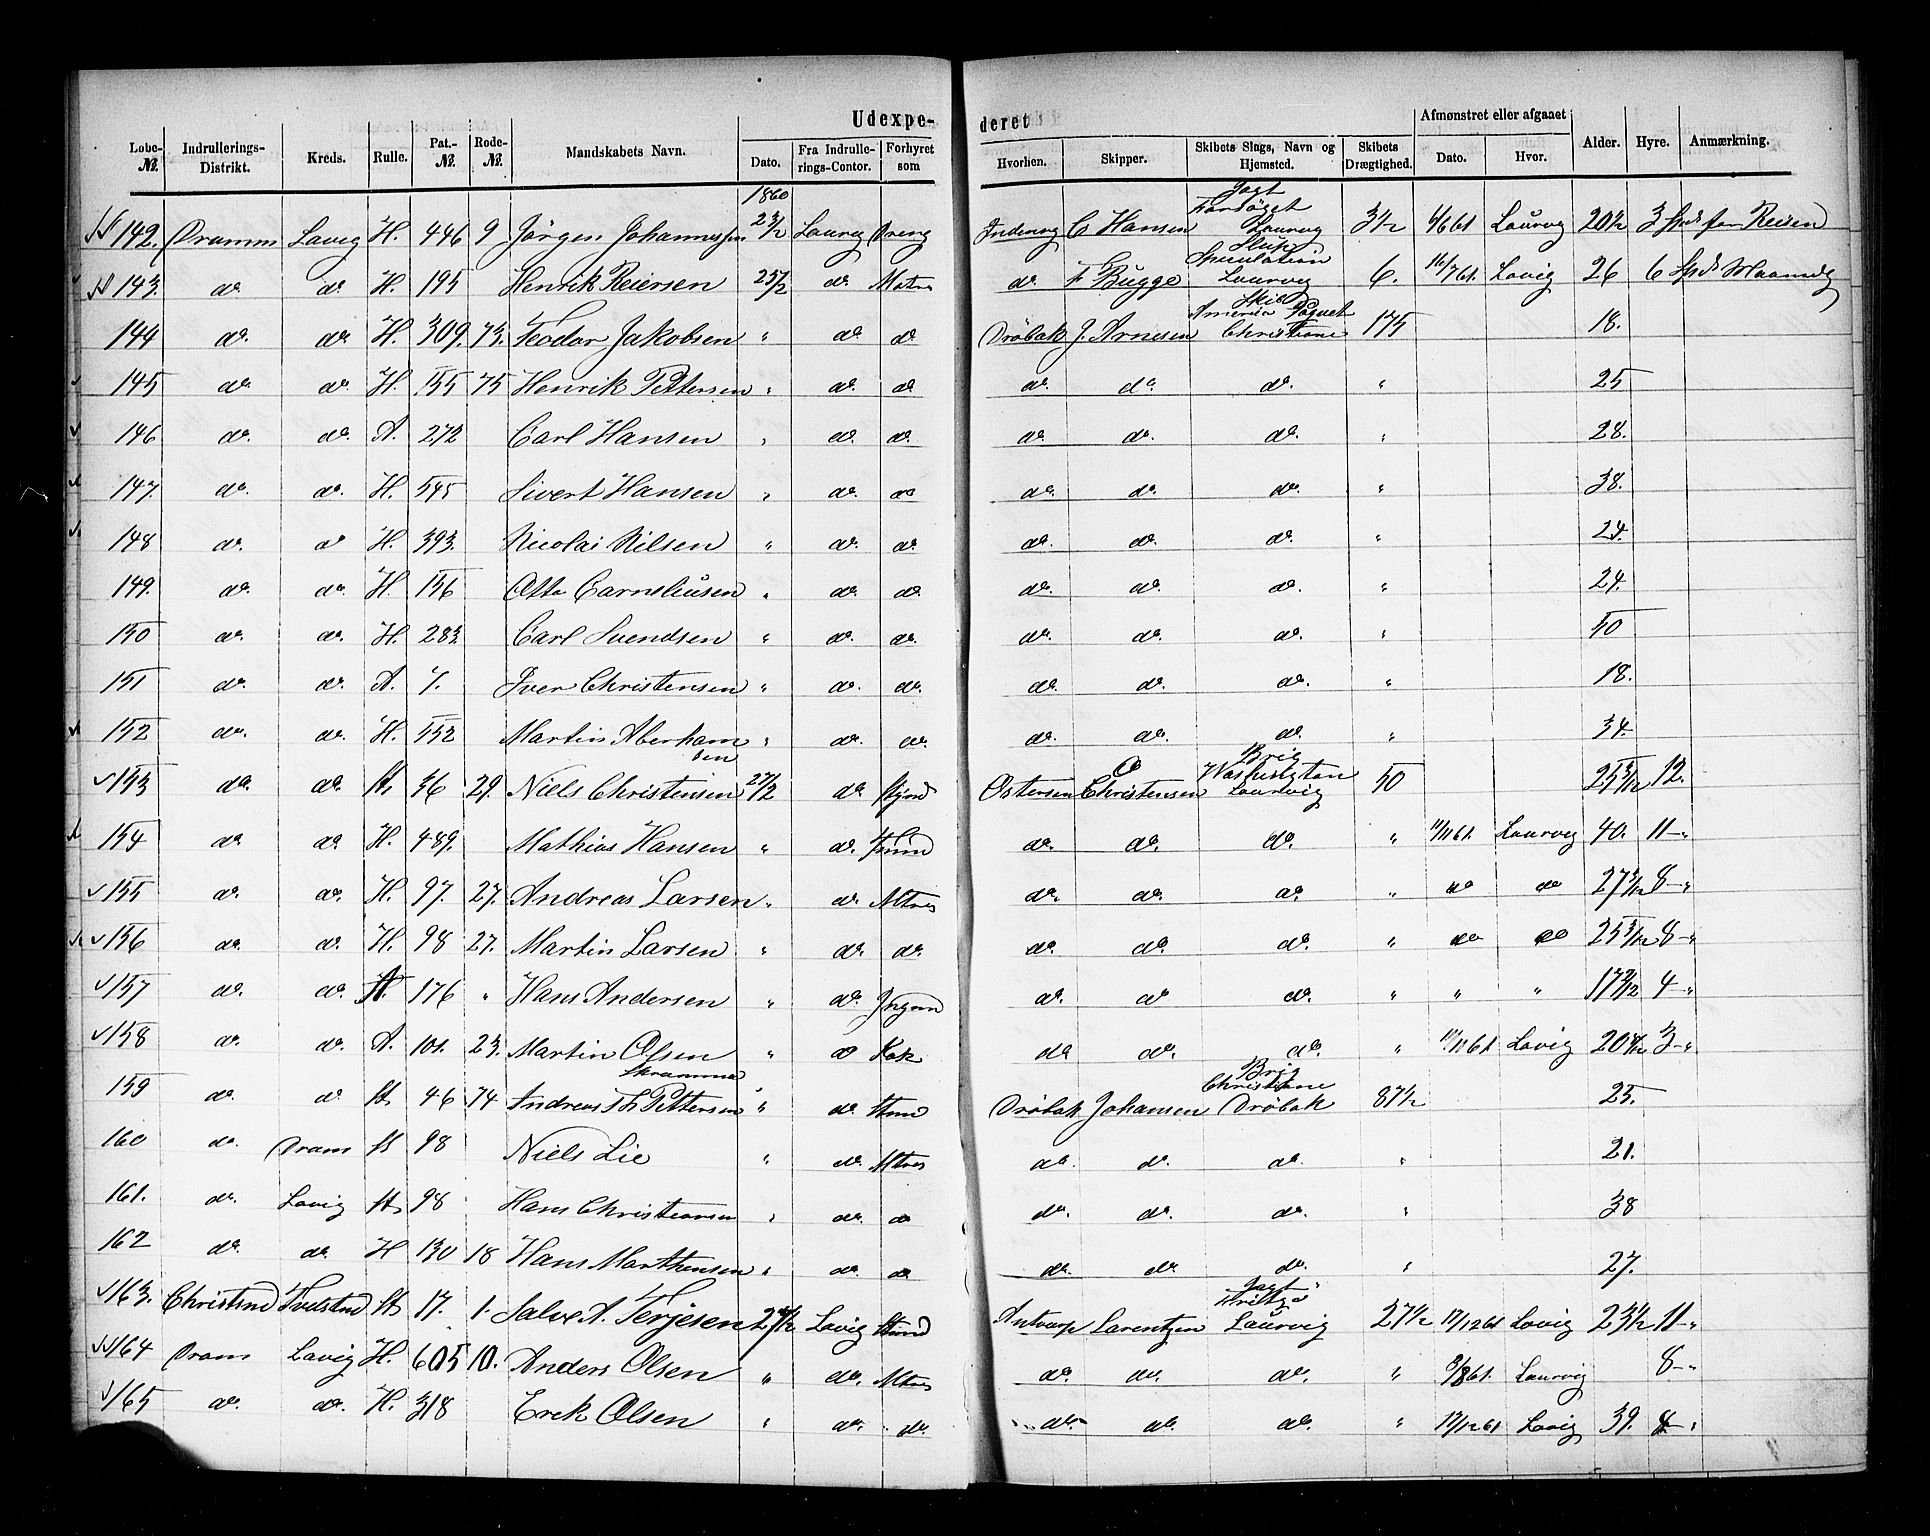 Udexpe- deret
Afmønstret eller afgaaet
Lobe-№. Indrullerings-Distrikt. Kreds. Rulle. Pat.-№. Rode-№. Mandskabets Navn. Dato. Fra Indrulle-rings-Contor. Forhyret som Hvorhen. Skipper. Skibets Slags, Navn og Hjemsted. Skibets Drægtighed. Dato. Hvor. Alder. Hyre. Anmærkning.
1860
142. Dramm Lavig H. 446 9 Jörgen Johannessen 23/2 Laurvg Dreng Indenrg C Hansen Jagt Forsöget Laurvg 3½ 4/6 61 Laurvg 20½ 3 Spd for Reisen
143. do do. H. 195 Henrik Reiersen 25/2 do Matrs do. F Bugge Slup Speculation Laurvg 6. 16/7 61. Lavig 26 6 Spd Maanedg
144 do. do H. 309. 73. Teodor Jakobsen " do do Dröbak J. Arnesen Skib America Paquet Christiane 175 18.
145 do. do H. 155 75 Henrik Pettersen " do. do do. do. do. " 25
146 do. do. A. 272 Carl Hansen " do. do. do do. do. " 28.
147. do. do. H. 545 Sivert Hansen " do. do do. do. do. " 38.
148 do. do H. 393. Nicolai Nilsen " do. do. do. do. do. " 24.
149. do. do. H. 156 Otto Carneliusen " do. do. do. do. do. " 24.
150 do. do. H. 283 Carl Svendsen " do. do. do. do. do. " 50
151 do. do. A. 7. Iver Christensen " do. do. do. do. do. " 18.
152 do. do. H. 552 Martin Aberhamsen " do. do. do. do. do. " 34
153 do. do. H. 36 29. Niels Christensen 27/2 do Styrm Ostersen C Christensen Brig Washingtan Laurvig 50 25 3/12 12.
154 do. do. H. 489. Mathias Hansen " do. Tmmd do. do. do. " 11/11 61. Laurvig 40. 11-"
155 do. do. H. 97. 27. Andreas Larsen " do Mtrs do. do. do " do do 27 3/12 8-"
156 do. do. H. 98 27. Martin Larsen " do. do. do. do. do. " do do 25 3/12 8-"
157 do. do. H. 176 " Hans Andersen " do. Jngm do. do do. " " " 17 2/12 4-"
158 do. do. A. 101. 23. Martin Olsen " do Kok do do. do. " 11/11 61 Lavig 20 3-"
159 do. do H. 46 74 Andreas Th Pettersen Skramma " do Tmmd Dröbak Johansen Brig Christiane Dröbak 87½ 25.
160 do. Dram H 98 Niels Lie " do. Mtrs do. do. do. " 21.
161. do. Lavig H 98 Hans Christiansen " do. do do. do. do. " 38
162 do. do. H 130 18 Hans Marthensen " do. do do. do. do. " 27.
163. Christsnd Tvedstrnd H 17. 1. Salve A. Terjesen 27/2 Lavig Tmmd Antverp Larentzen Jagt Laurvig 27½ 17/12 61 Lavig 23½ 11-"
164 Dram Lavig H. 605 10. Anders Olsen " do. Mtrs do. do. do. " 8/8 61. Laurvig 8-"
165 do. do. H. 318 Erek Olsen " do. do. do. do. do. " 17/12 61 Lavig 39. 8-"